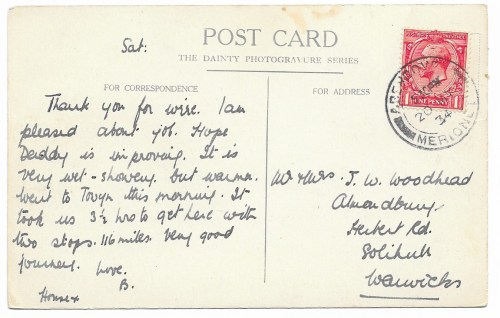 Sat:
POST CARD
THE DAINTY PHOTOGRAVURE SERIES
FOR CORRESPONDENCE
FOR ADDRESS
Thank you for wire. I am
pleased about job. Hope
Daddy is improving. It is
very wet - showery but warmer.
Went to Towyn this morning. It
took us 3½ hrs to get here with
two stops. 116 miles. Very good
journey. Love.
B.
Mr & Mrs. J. W. Woodhead
Almondbury
Herbert Rd.
Solihull
Warwicks
ONE PENNY
20
34
MERIONETH